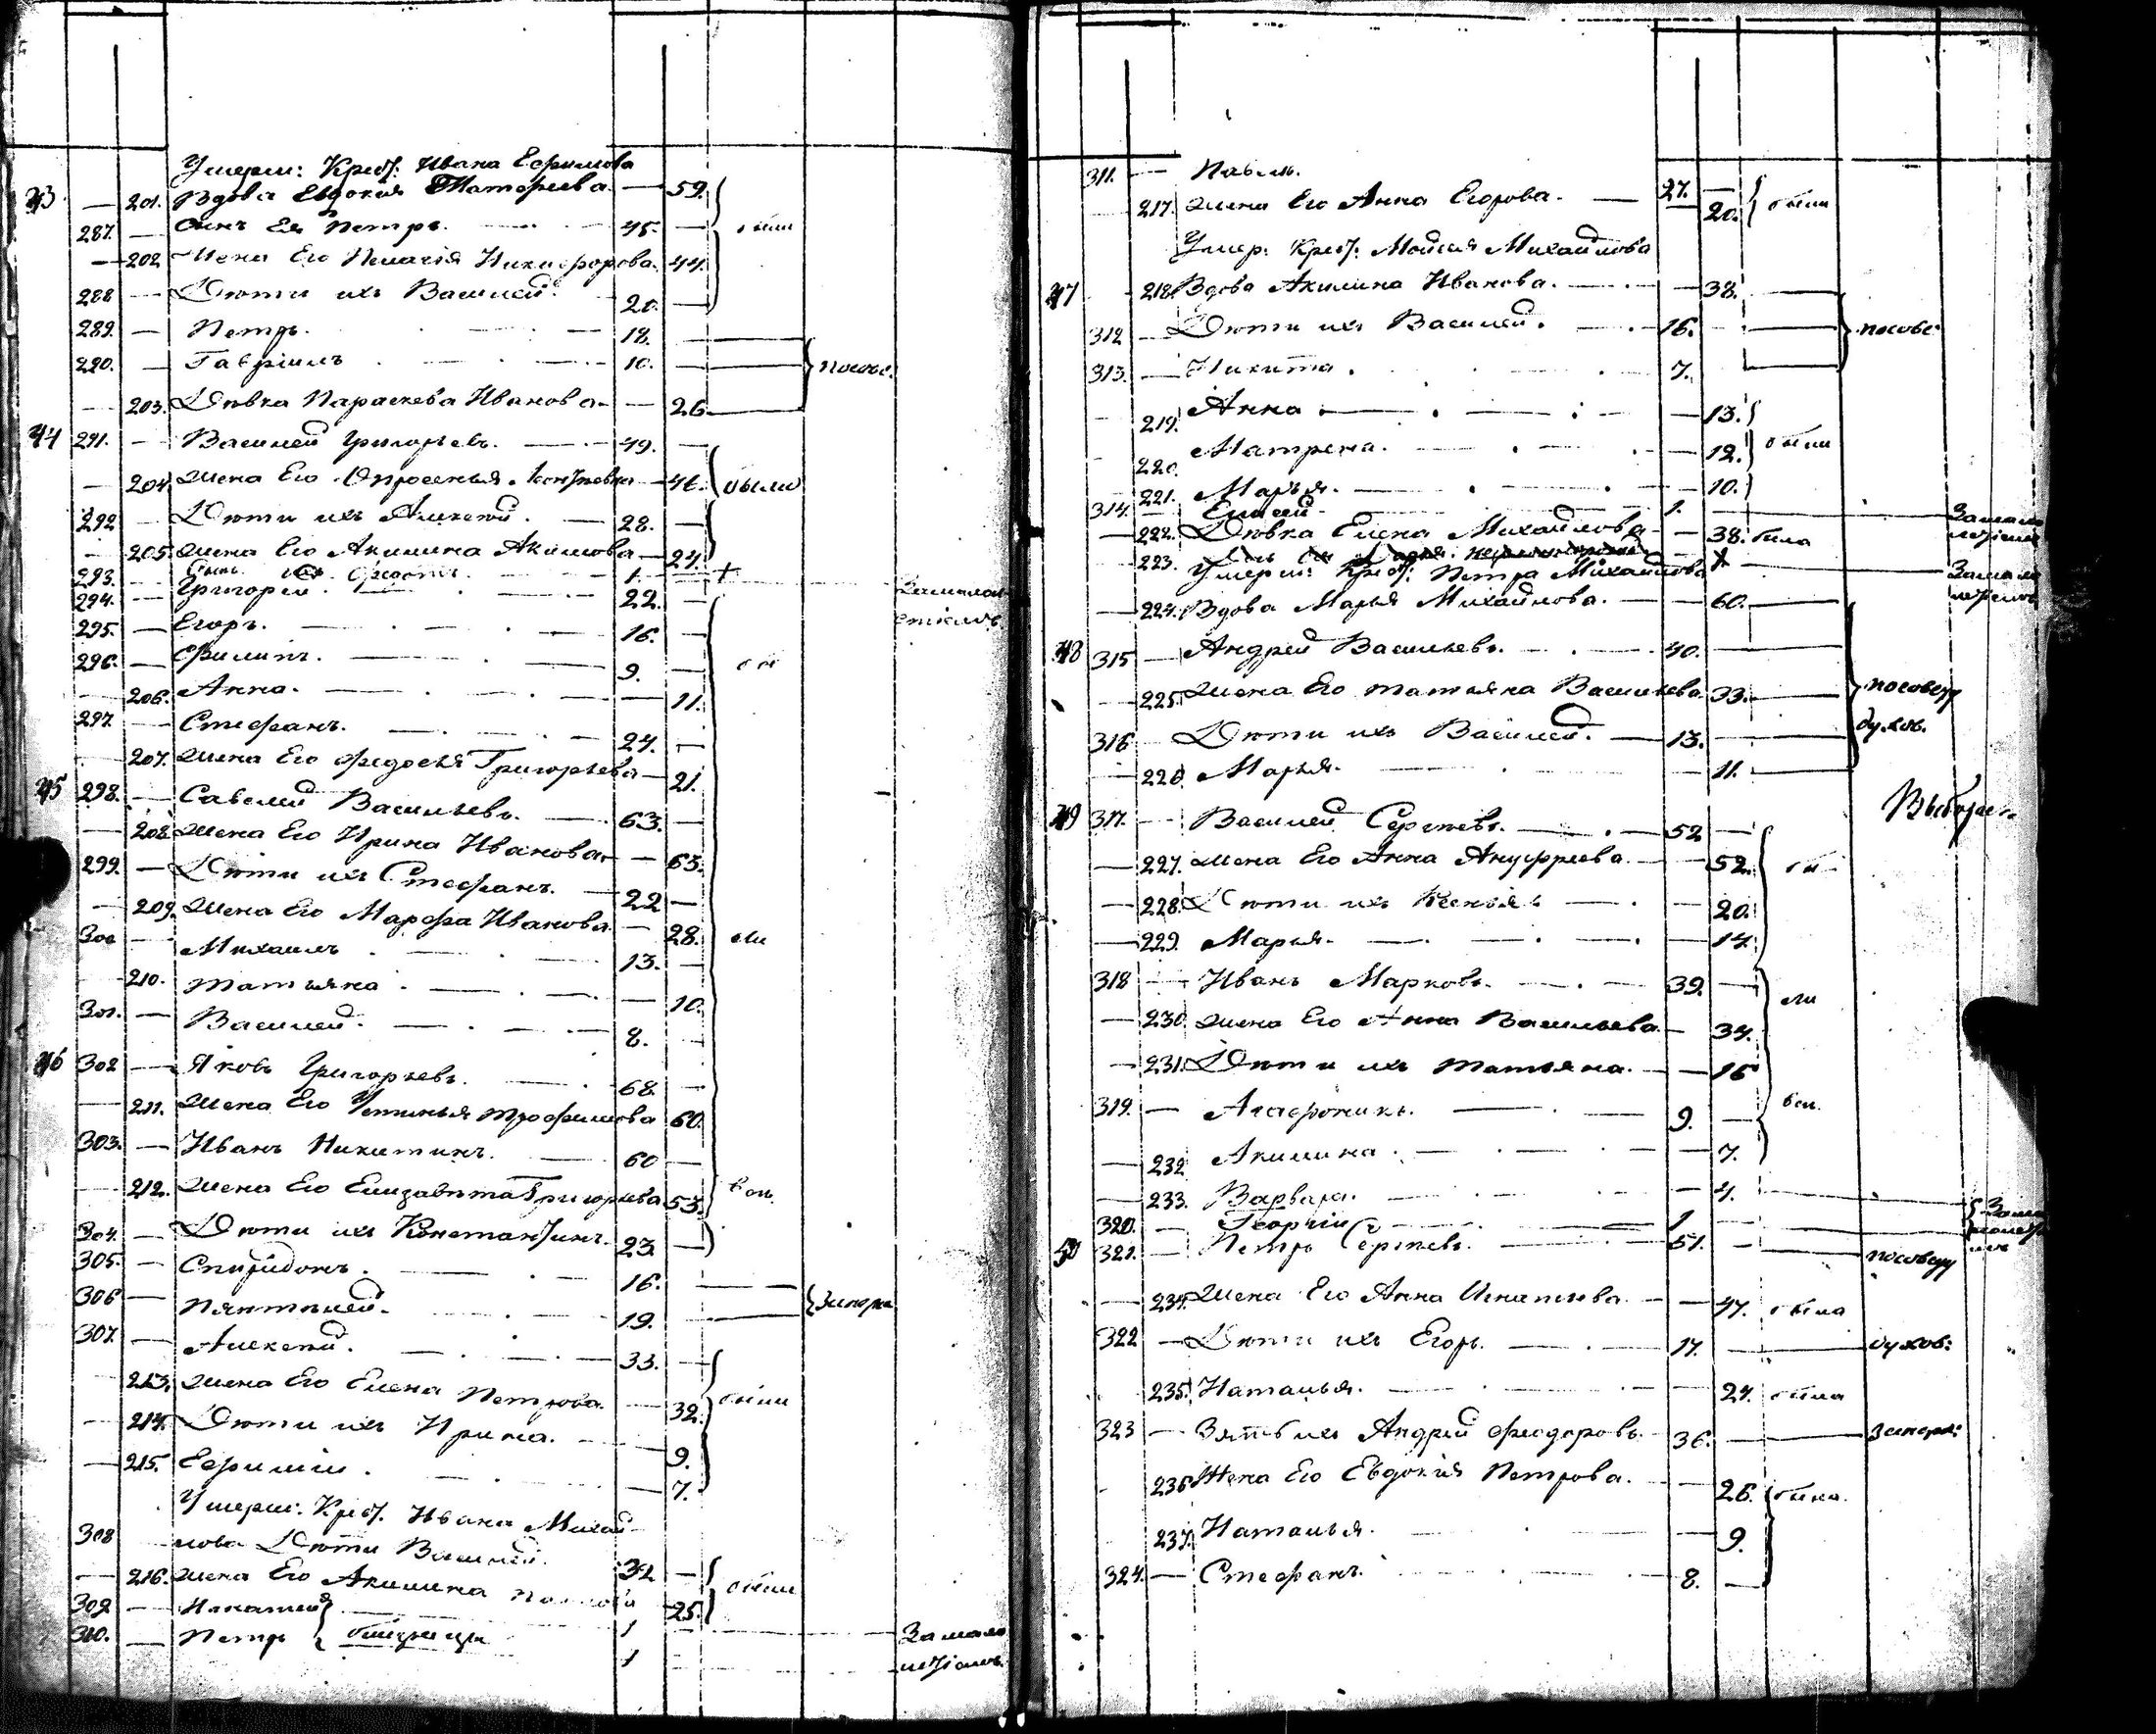 Умерш: Крест: Ивана Ефимова
43 — 201. Вдова Евдокия Матфеева — 59.
287. — Сынъ Ея Петръ. — 45. — были
— 202 Жена Его Пелагія Никифорова. 44.
288 — Дѣти ихъ Василей. — 20. —
289. — Петръ. — 18. —
290. — Гавріилъ — 10. — посовс.
— 203. Дѣвка Параскева Иванова — 26
44 291. — Василей Григорьевъ. — 49. —
— 204 Жена Его — 46. были
292 — Дѣти ихъ Алексей. — 28. —
— 205 Жена Его Акилина Акимова — 24.
293. — Сынъ ихъ Федотъ. — 1. — +
294. — Григорей. — 22. — Замалол
295. — Егоръ. — 16. — етіемъ.
296. — Филипъ. — 9. — бы
— 206. Анна. — 11.
297. — Стефанъ. — 24. —
— 207. Жена Его Федосья Григорьева — 21.
45 298. — Савелей Васильевъ. — 63. —
— 208. Жена Его Ирина Иванова — 65.
299. — Дѣти ихъ Стефанъ. — 22 —
— 209. Жена Его Марфа Иванова — 28. ли
300 — Михаилъ — 13. —
— 210. Татьяна — 10.
301. — Василей. — 8. —
46 302 — Яковъ Григорьевъ. — 68. —
— 211. Жена Его Устинья Трофимова 60.
303. — Иванъ Никитинъ. — 60 —
— 212. Жена Его Елизавѣта Григорьева 53. вси.
304. — Дѣти ихъ Константинъ. 23. —
305. — Спиридонъ. — 16. —
306 — Пантелей. — 19. —
307. — Алексей. — 33. —
— 213. Жена Его Елена Петрова. — 32. были
— 214. Дѣти ихъ Ирина. — 9.
— 215. Ефимія. — 7.
Умерш: Крест. Ивана Михай-
308 лова Дѣти Василей. 32 —
— 216. Жена Его Акилина — 25. были
309 — Игнатей — 1 — Замало
310. — Петръ близнецы 1 — летіемъ.
311. — Павелъ. 27. —
— 217. Жена Его Анна Егорова. — 20. были
Умер: Крест: Мойсея Михайлова
47 — 218. Вдова Акилина Иванова. — 38.
312 — Дѣти ихъ Василей. — 16. — посовс:
313. — Никита. — 7.
— 219. Анна — 13.
— 220. Матрена. — 12. были
— 221. Марья. — 10.
314. — Елисей — 1. — Замало
— 222. Дѣвка Елена Михайлова — 38. была летіемъ
223. Умерш: Крест: Петра Михайлова — Замало
— 224. Вдова Марья Михайлова. — 60. летіемъ
48 315 — Андрей Васильевъ. — 40.
— 225. Жена Его Татьяна Васильева 33. посовету
316 — Дѣти ихъ Василей. — 13. — духов.
— 226 Марья. — 11.
49 317. — Василей Сергѣевъ. — 52 —
— 227. Жена Его Анна Ануфріева. — 52. бы
— 228. Дѣти ихъ Ксенья — 20.
— 229. Марья. — 14.
318 — Иванъ Марковъ. — 39. — ли
— 230. Жена Его Анна Васильева — 34.
— 231. Дѣти ихъ Татьяна. — 15
319. — Агафоникъ. — 9. — вси.
— 232 Акилина. — 7.
— 233. Варвара. — 4.
320. — Георгій — 1 —
50 321. — Петръ Сергѣевъ. — 51. — посовету
— 234. Жена Его Анна Игнатьева — 47. была
322 — Дѣти ихъ Егоръ. — 17. — духов:
— 235. Наталья. — 24. была
323 — Зять ихъ Андрей Феодоровъ. — 36. —
— 236 Жена Его Евдокия Петрова. — 26. были.
237. Наталья. — 9.
324. — Стефанъ. — 8. —